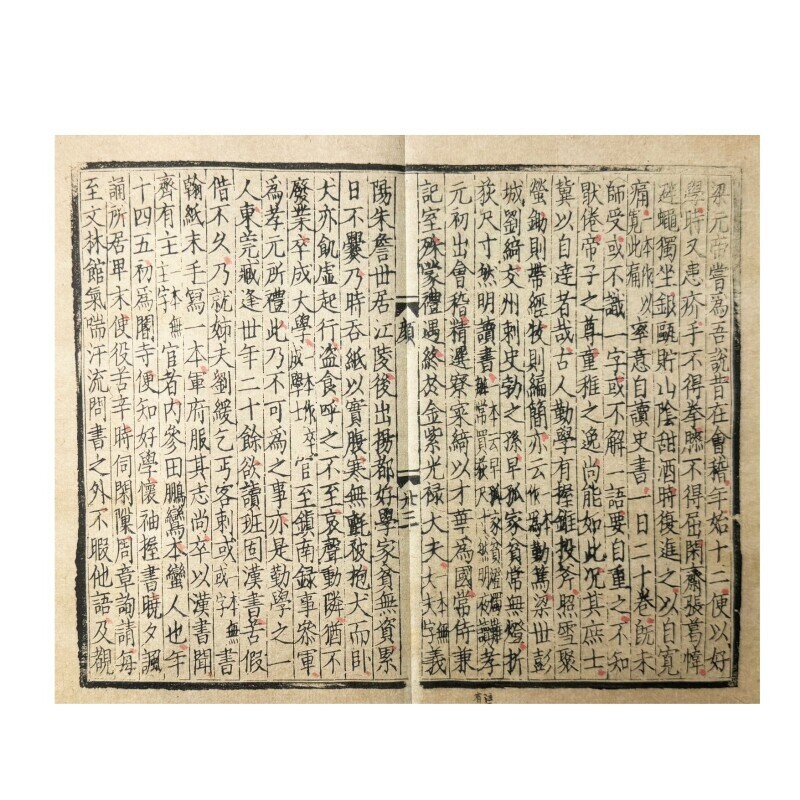 梁元帝嘗為吾說昔在會稽年始十二便以好
學時又患疥手不得拳膝不得屈閑齋張葛幃
避蠅獨坐銀甌貯山陰甜酒時復進之以自寬
痛一本作以寬此痛率意自讀史書一日二十卷既未
師受或不識一字或不解一語要自重之不知
猒倦帝子之尊童稚之逸尚能如此况其庶士
冀以自達者哉古人勤學有握錐投斧照雪聚
螢鋤則帶經牧則編簡亦云一本作為勤篤梁世彭
城劉綺交州刺史勃之孫早孤家貧常無燈折
荻尺寸然明讀書孝
元初出會稽精選寮寀綺以才華為國常侍兼
記室殊蒙禮遇終於金紫光禄大夫一本無大夫字義
顔
廿三
陽朱詹世居江陵後出揚都好學家貧無資累
日不爨乃時吞紙以實腹寒無氈被抱犬而卧
犬亦飢虚起行盗食呼之不至哀聲動隣猶不
廢業卒成大學一本作卒成學士官至鎮南録事叅軍
為孝元所禮此乃不可為之事亦是勤學之一
人東莞臧逢世年二十餘欲讀班固漢書苦假
借不久乃就姊夫劉緩乞丐客刺或一本無或字書
翰紙末手寫一本軍府服其志尚卒以漢書聞
齊有主一本無主字宦者内參田鵬鸞本蠻人也年
十四五初為閽寺便知好學懷袖握書曉夕諷
誦所居卑末使役苦辛時伺閑隟周章詢請每
至文林館氣喘汗流問書之外不暇他語及覩